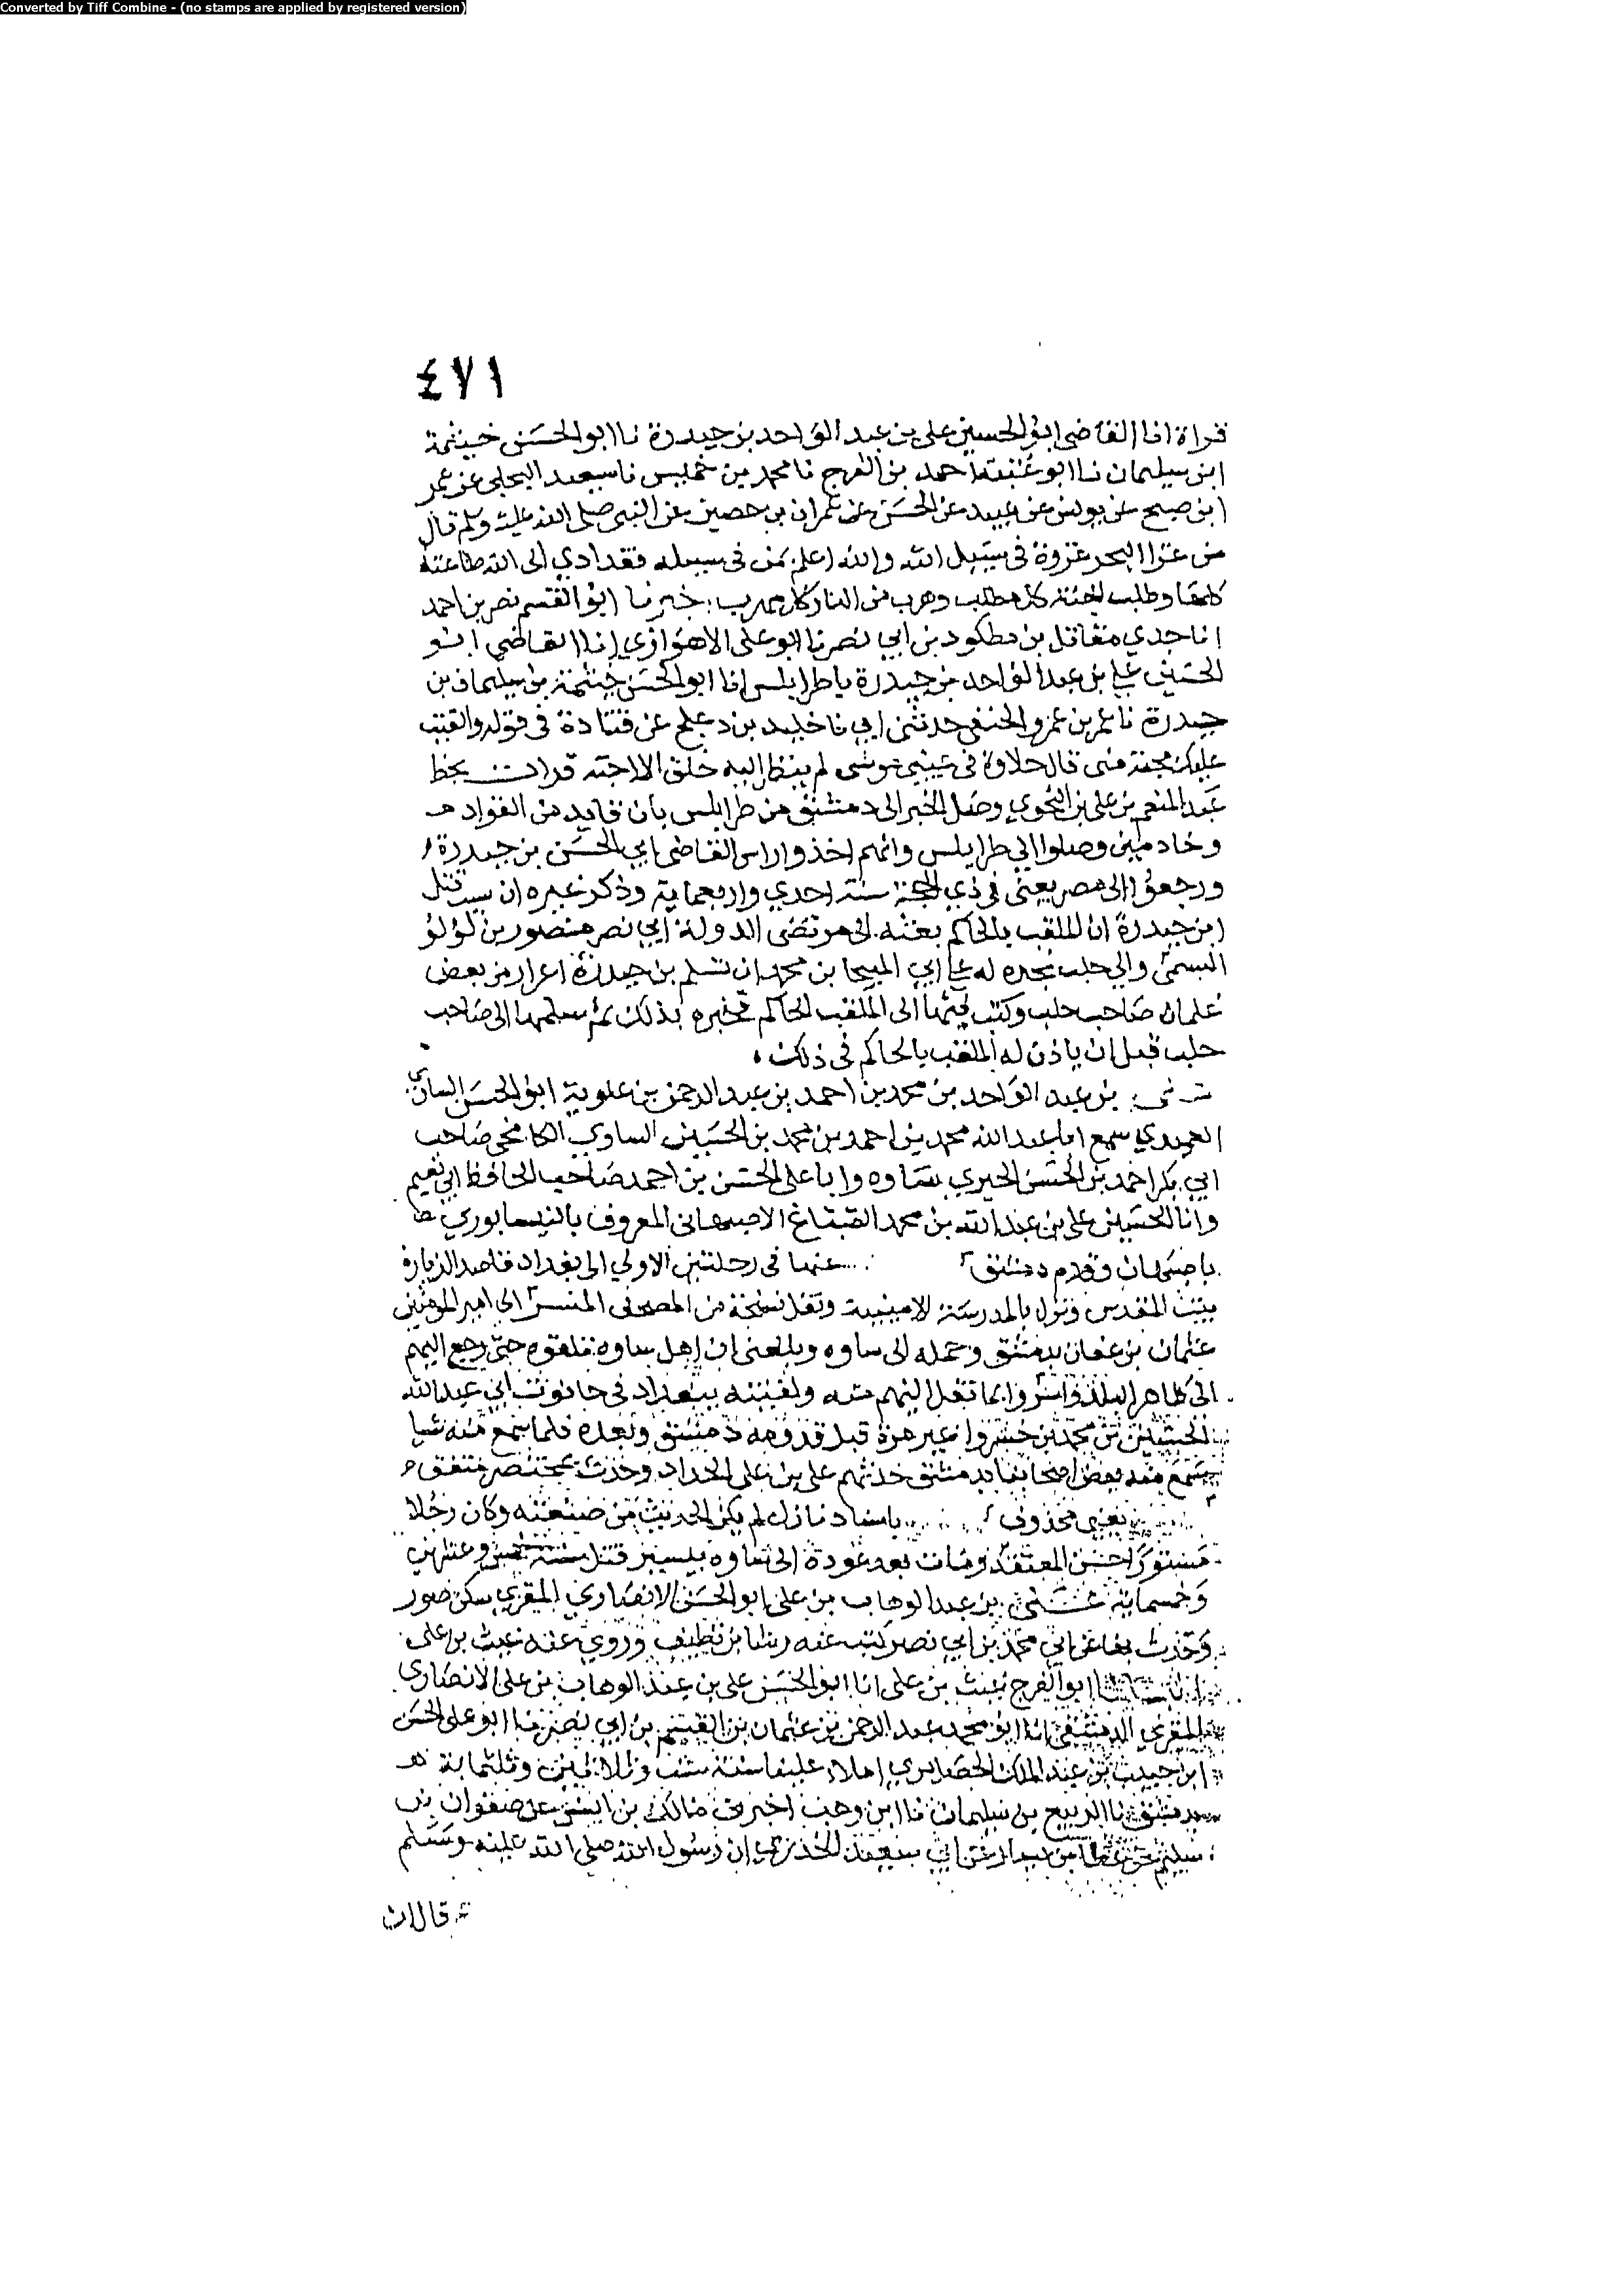 Converted by Tiff Combine - (no stamps are applied by registered version)
٤٧١
قراة انا القاضي ابو الحسين علي بن عبد الواحد بن حيدرة نا ابو الحسن خيثمة
ابن سليمان نا ابو عتبة احمد بن الفرج نا محمد بن خميس نا سعيد البجلي عن عمر
ابن صبح عن يونس عن عبيد عن الحسن عن عمران بن حصين عن النبي صلى الله عليه وسلم قال
من غزا البحر غزوة في سبيل الله والله اعلم بمن في سبيله فقد ادي الى الله طاعته
كلها وطلب الجنة كل مطلب وهرب من النار كل مهرب خبرنا ابو القسم نصر بن احمد
انا جدي مقاتل بن مطكود بن ابي نصر نا ابو علي الاهوازي انا القاضي ابو
الحسين علي بن عبد الواحد بن حيدرة باطرابلس انا ابو الحسن خيثمة بن سليمان بن
حيدرة نا عمر بن عمرو الحنفي حدثني ابي نا خليد بن دعلج عن قتادة في قوله والقيت
عليك محبة مني قال حلاوة في عيني موسى لم ينظر اليه خلق الا احبه قرات بخط
عبد المنعم بن علي بن النحوي وصل الخبر الى دمشق من طرابلس بان قايد من القواد
وخادمين وصلوا الى طرابلس وانهم اخذوا راس القاضي ابي الحسن بن حيدرة
ورجعوا الى مصر يعني في ذي الحجة سنة احدي واربعماية وذكر غيره ان سبب قتل
ابن حيدرة ان الملقب بالحاكم بعثه الى مرتضى الدولة ابي نصر منصور بن لولو
والي حلب نجده له علي ابي الهيجا بن حمدان تسلم بن حيدرة اعزاز من بعض
غلمان صاحب حلب وكتب الى الملقب الحاكم يخبره بذلك ثم سلمها الى صاحب
حلب قبل ان ياذن له الملقب بالحاكم في ذلك
بن عبد الواحد بن محمد بن احمد بن عبد الرحمن بن علوية ابو الحسن الساوي
سمع ابا عبد الله محمد بن احمد بن محمد بن الحسين الساوي الكامخي صاحب
ابي بكر احمد بن الحسن الحيري بساوه وابا علي الحسن بن احمد صاحب الحافظ ابي نعيم
وانا الحسين علي بن عبد الله بن محمد الصباغ الاصبهاني المعروف بالنيسابوري
باصبهان وقدم دمشق عنها في رحلتين الاولي الى بغداد قاصد الزيارة
بيت المقدس ونزل بالمدرسة الامينية ونقل نسخة من المصحف الى امير المومنين
عثمان بن عفان بدمشق وحمله الى ساوه وبلغني ان اهل ساوه تلقوه حتى رجع اليهم
الى ظاهر البلد بما نقل اليهم منه ولقيته ببغداد في حانوت ابي عبد الله
الحسين بن محمد بن خسروا غير مرة قبل قدومه دمشق وبعده فلما سمع منه شيا
سمع منه بعض اصحابنا بدمشق حدثهم علي بن علي الحداد وحدث بمختصر متفق
باسناد نازل لم يكن الحديث من صنعته وكان رجلا
مستورا حسن المعتقد ومات بعد عودة الى ساوه بيسير قتل سنة خمس وعشرين
وخمسماية بن عبد الوهاب بن علي ابو الحسن الانصاري المقري سكن صور
وحدث بها عن ابي محمد بن ابي نصر كتب عنه رشا بن نظيف وروي عنه غيث بن علي
ابو الفرج غيث بن علي انا ابو الحسن علي بن عبد الوهاب بن علي الانصاري
المقري الدمشقي انا ابو محمد عبد الرحمن بن عثمان بن القسم بن ابي نصر نا ابو علي الحسن
ابن حبيب بن عبد الملك الحصايري املاء علينا سنة ست وثلاثين وثلثماية
بدمشق نا الربيع بن سليمان نا ابن وهب اخبرني مالك بن انس عن صفوان بن
سليم عن عطا بن يسار عن ابي سعيد الخدري ان رسول الله صلى الله عليه وسلم
قال ان